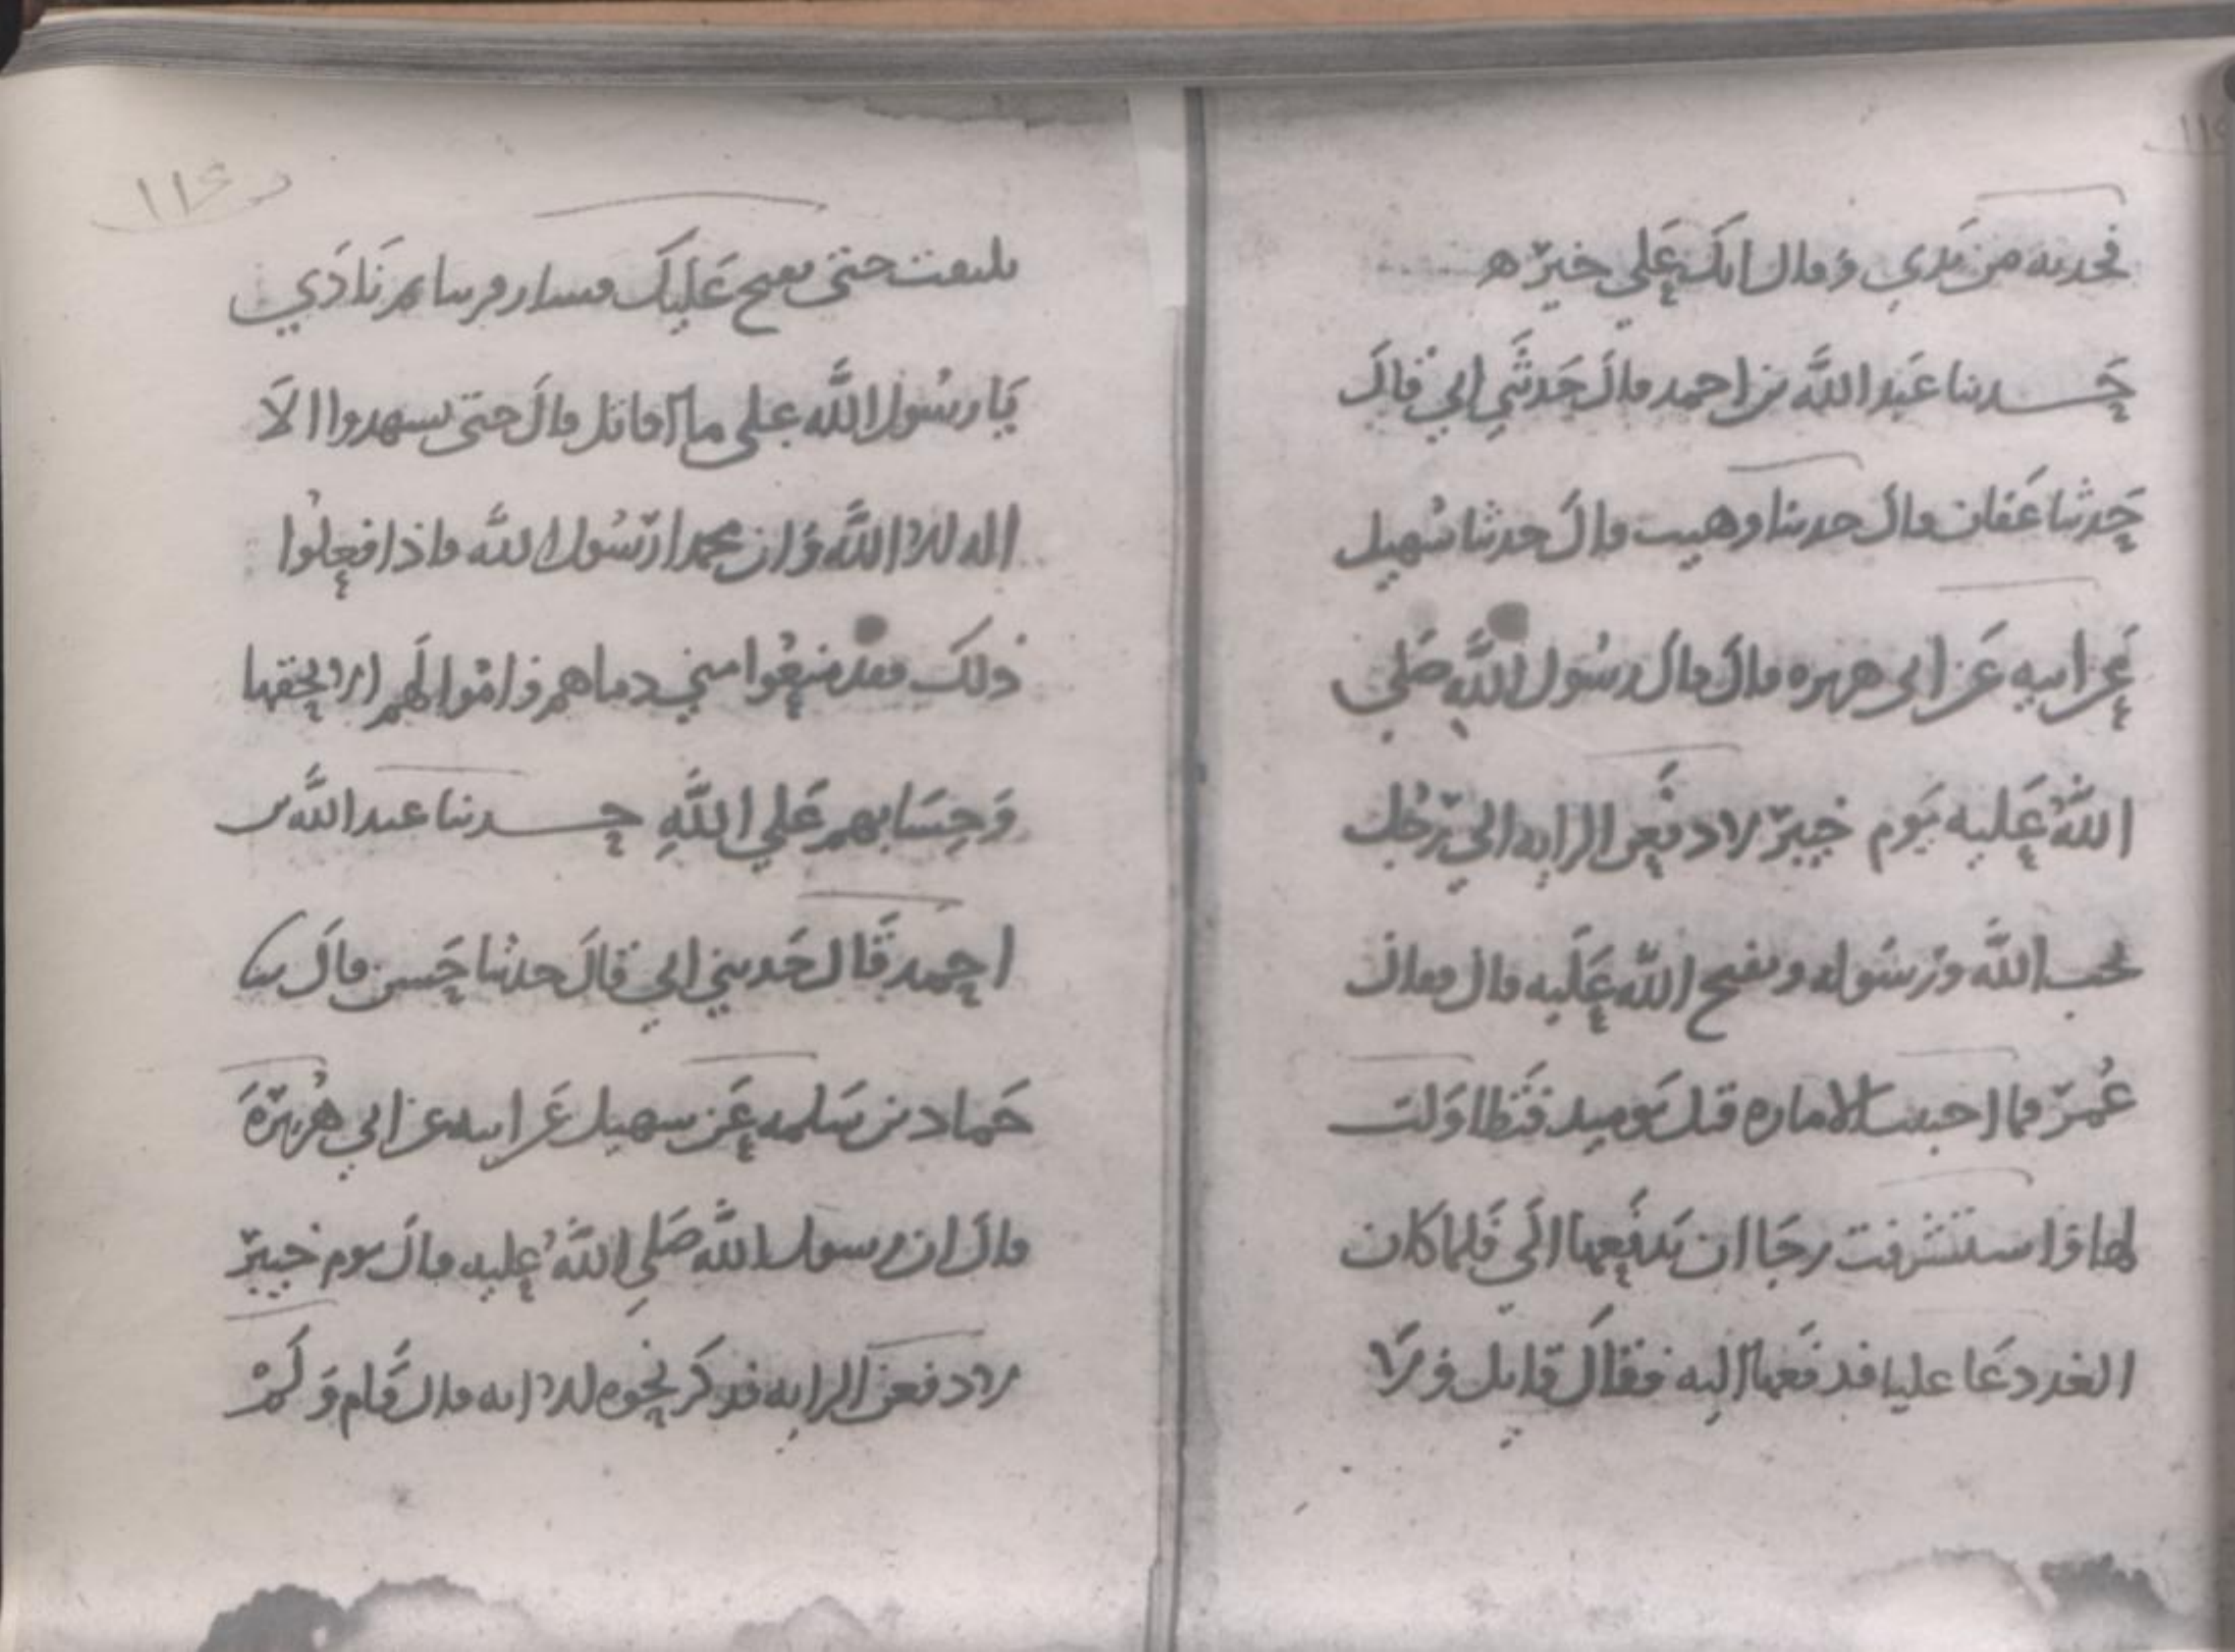 فجذبه من يدي وقال انك علي خير ه
حدثنا عبد الله بن احمد قال حدثني ابي قال
حدثنا عفان قال حدثنا وهيب قال حدثنا سهيل
عن ابيه عن ابي هريره قال قال رسول الله صلي
الله عليه يوم خيبر لادفعن الرايه الي رجل
يحب الله ورسوله ويفتح الله عليه قال فقال
عمر فما احببت الاماره قبل يوميذ فتطاولت
لها واستشرفت رجا ان يدفعها الي فلما كان
الغد دعا عليا فدفعها اليه فقال قاتل ولا
تلتفت حتى يفتح عليك فسار قريبا ثم نادي
يا رسول الله على ما اقاتل قال حتى يشهدوا الا
اله الا الله وان محمدا رسول الله فاذا فعلوا
ذلك فقد منعوا مني دماهم واموالهم الا بحقها
وحسابهم علي الله حدثنا عبد الله بن
احمد قال حدثني ابي قال حدثنا حسن قال ثنا
حماد بن سلمه عن سهيل عن ابيه عن ابي هريرة
قال ان رسول الله صلي الله عليه قال يوم خيبر
لادفعن الرايه فذكر نحوه الا انه قال قام ولم